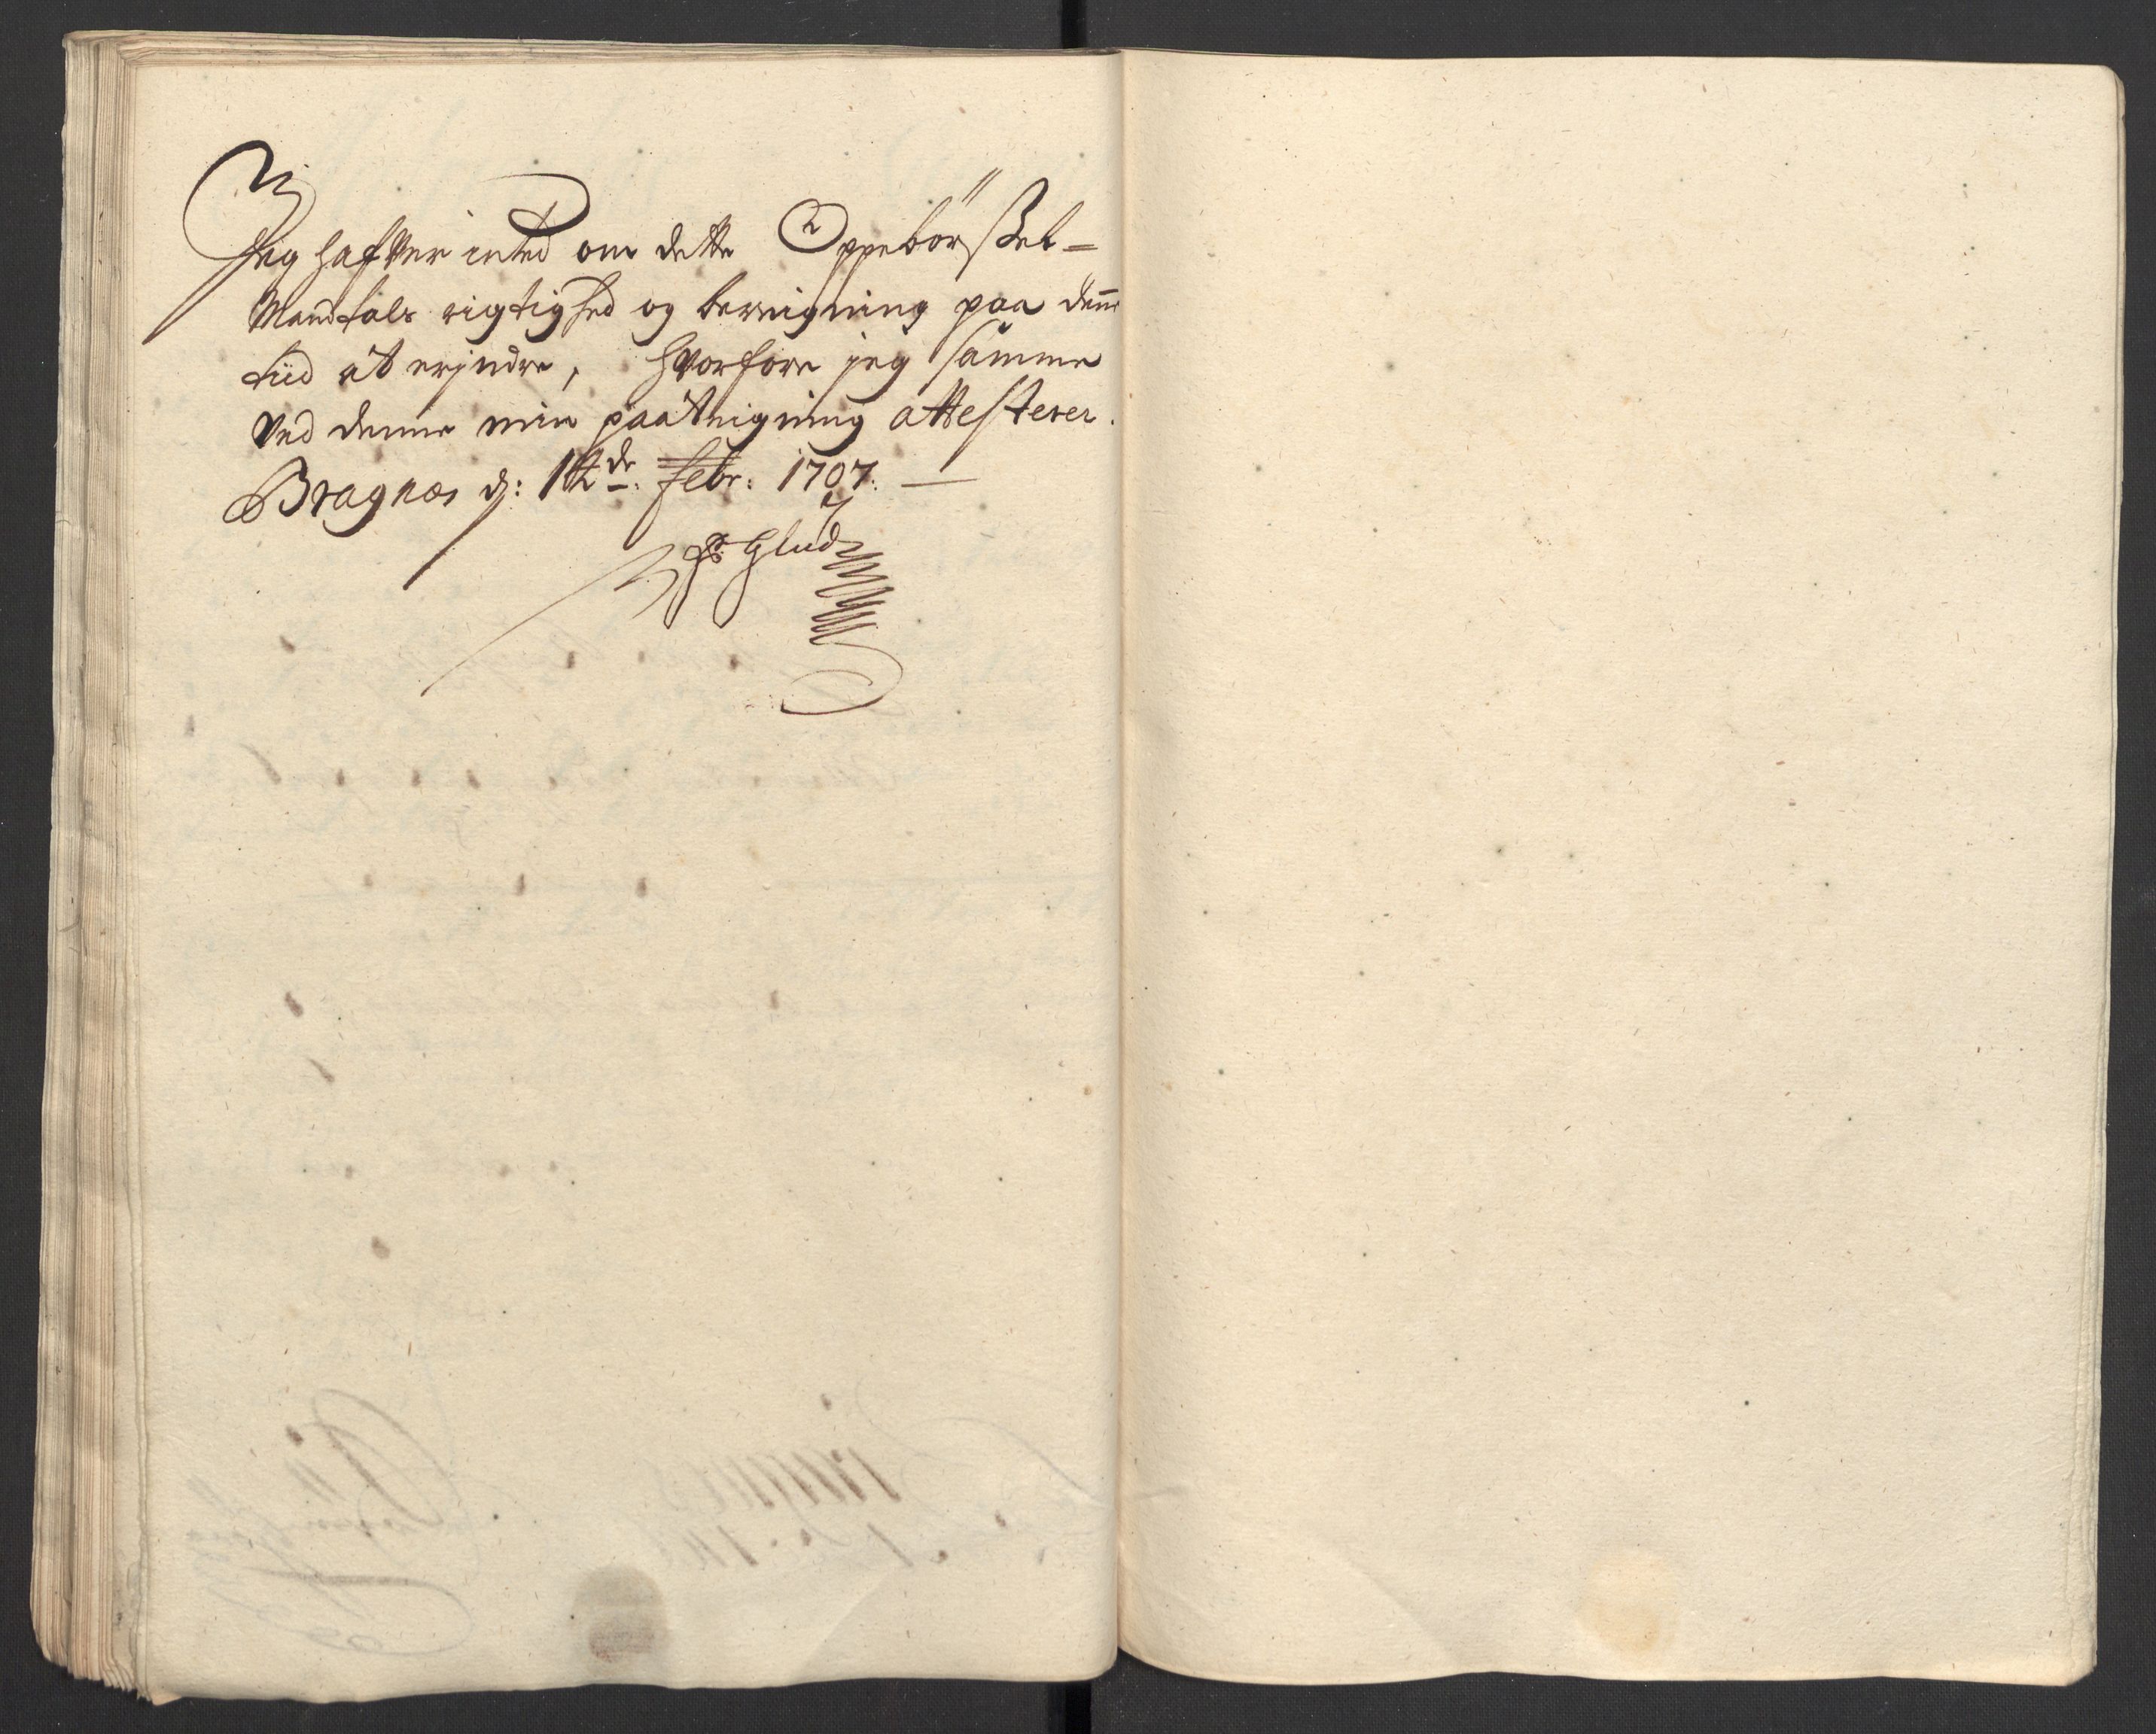 Jeg hafver inted om dette Oppebörßel-
Mandtals rigtighed og beregning paa deñe
tiid at erjndre, hvorfore jeg samme
ved denne min paategning attesterer.
Bragnæs d: 12de Febr: 1707. —
Glud